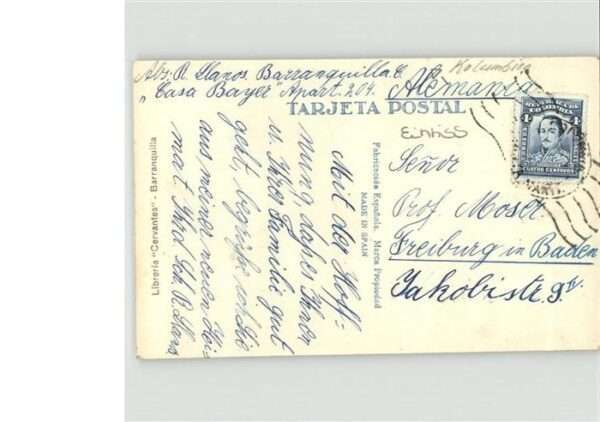 Abs. R. Llanos. Barranquilla. C.
„Casa Bayer" Apart. 204.
Kolumbien
Alemania
TARJETA POSTAL
REPUBLICA DE
COLOMBIA
4
4
CUATRO CENTAVOS
Einriss
Señor
Prof. Moser
Freiburg in Baden
Jakobistr. 9
Fabricación Española. Marca Propiedad
MADE IN SPAIN
Mit der Hoff-
nung, dass es Ihnen
u. Ihrer Familie gut
geht, begrüße ich Sie
aus meiner neuen Hei-
mat Ihrd. Sch. R. Llanos
Librería "Cervantes" - Barranquilla